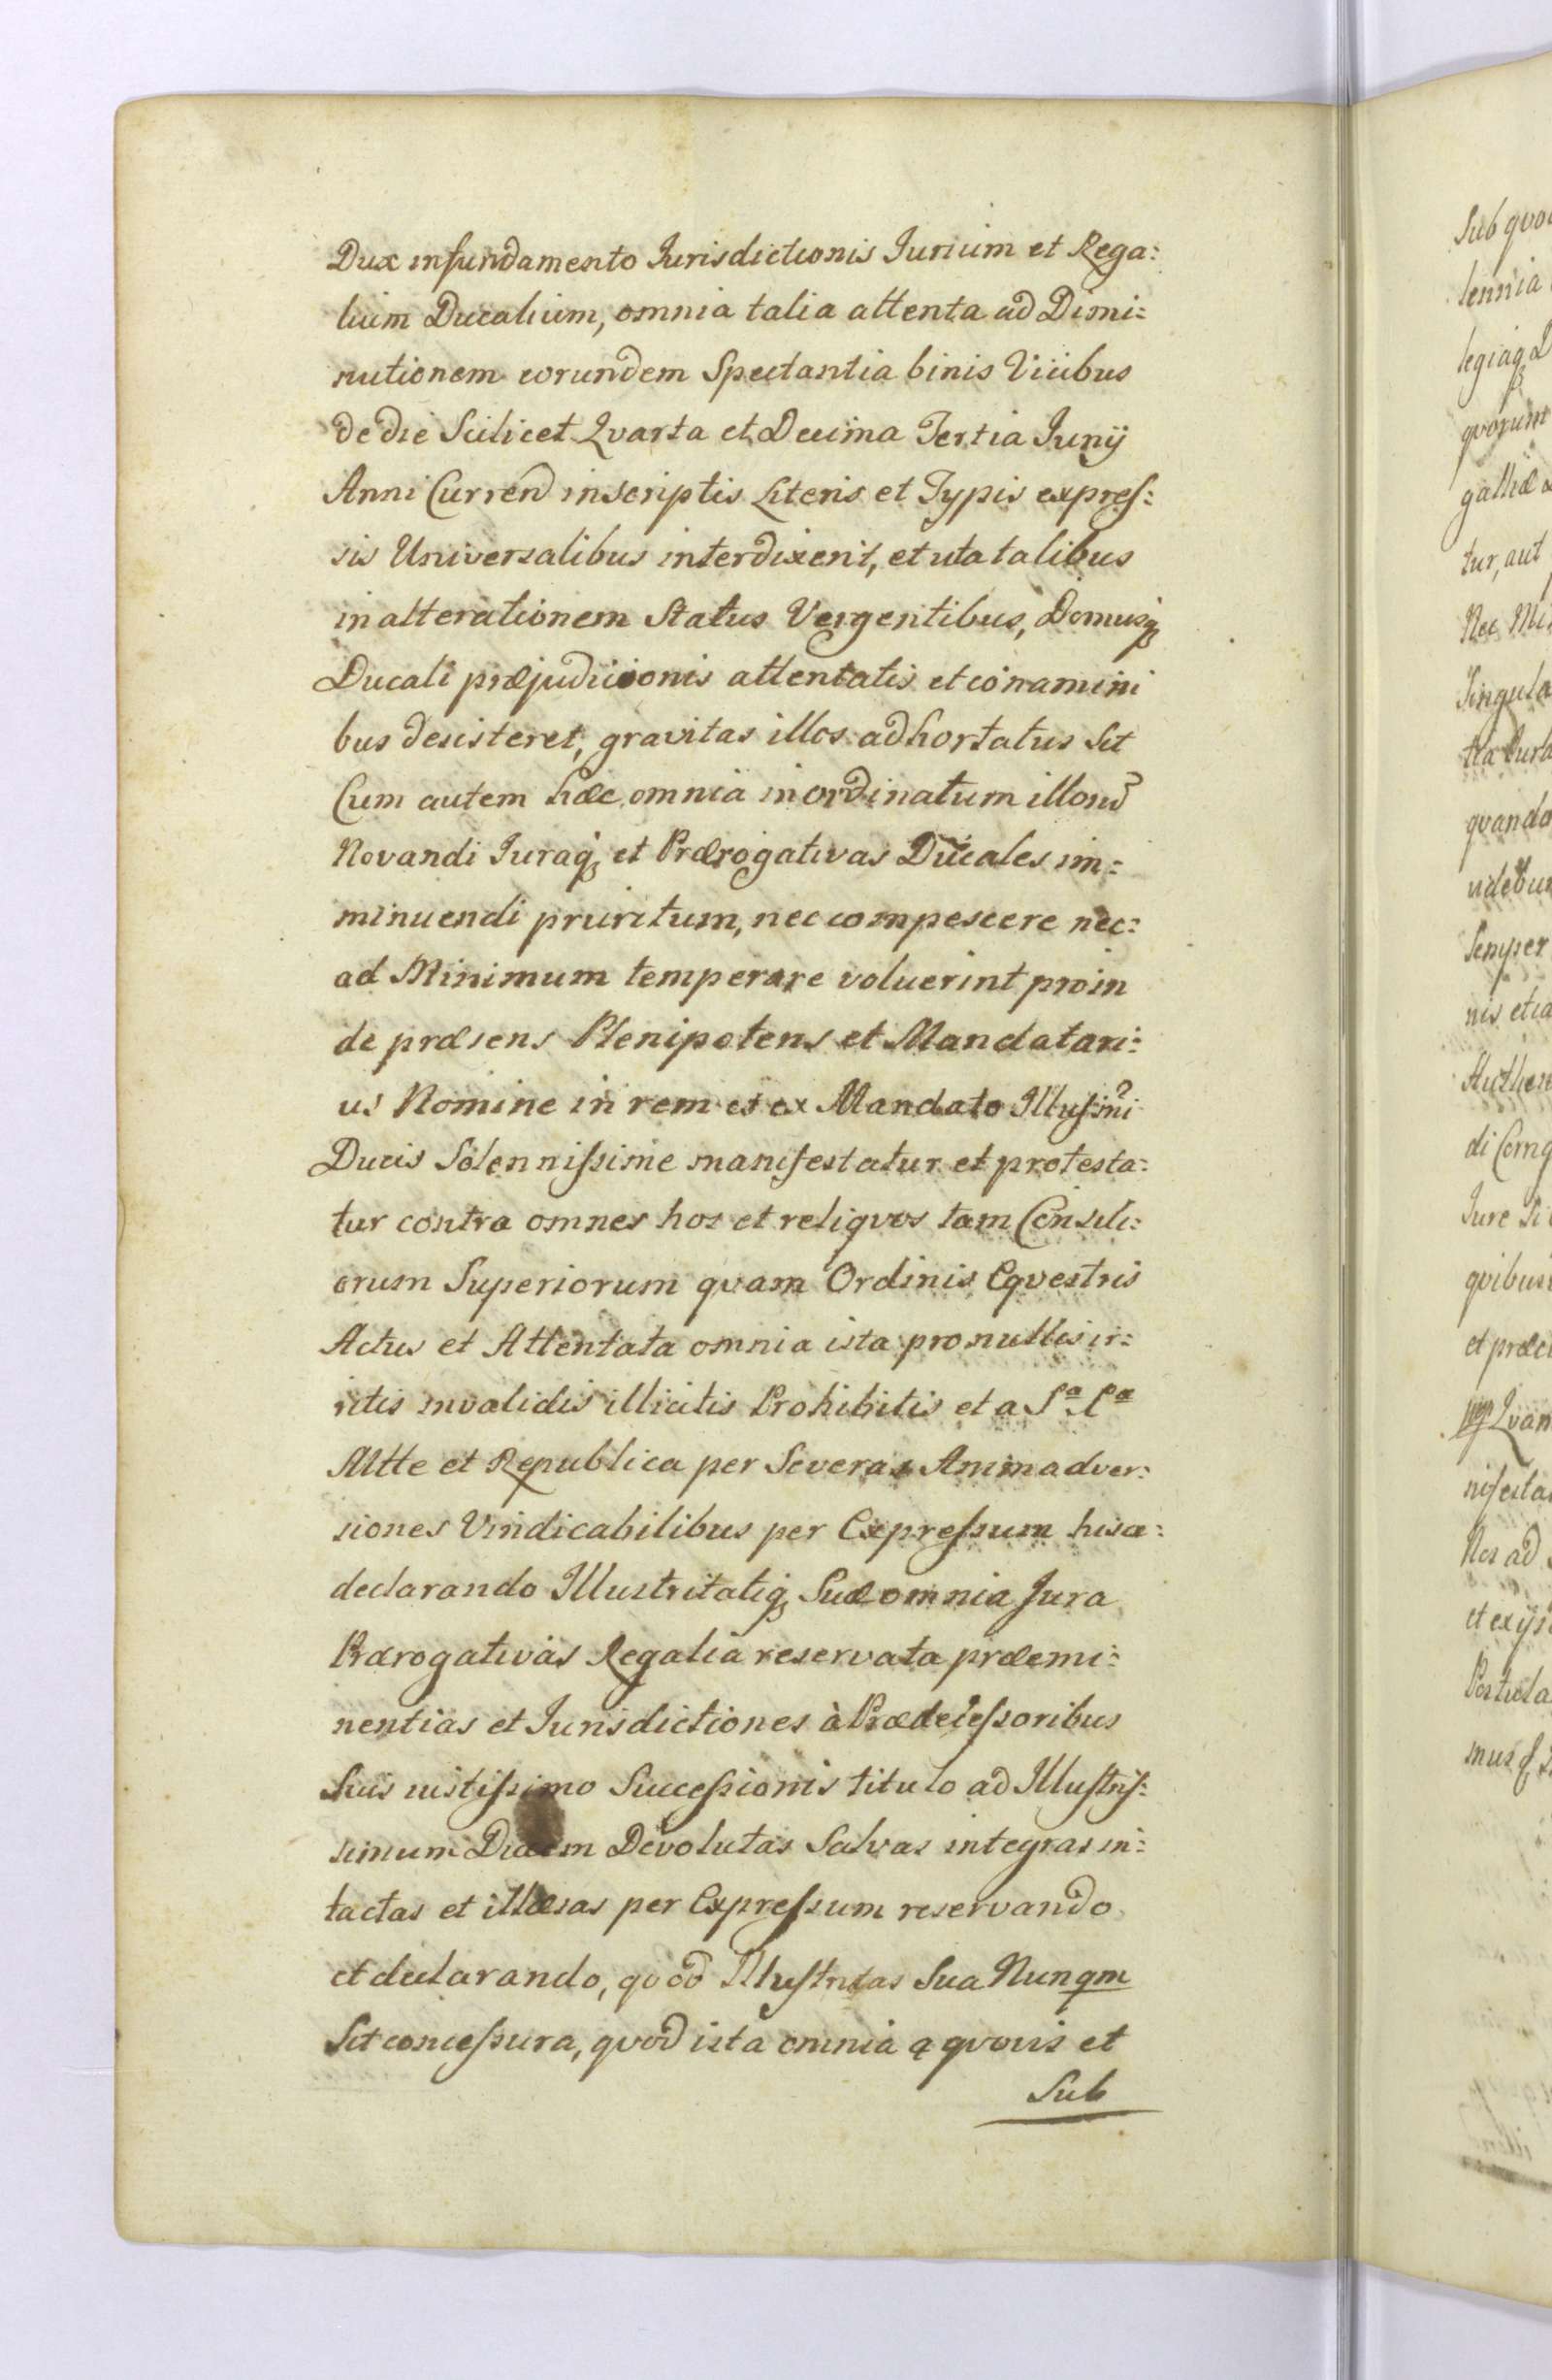 Dux in fundamento Jurisdictionis Jurium et Rega:
lium Ducalium, omnia talia attenta ad Dimi:
nutionem eorundem Spectantia binis Vicibus
de die Scilicet Qvarta et Decima Tertia Junij
Anni Curren̄ in scriptis Literis et Typis expres:
sis Universalibus interdixerit, et uta talibus
in alterationem Status Vergentibus, Domusq₃
Ducali præjudiciosis attentatis et conamini
bus desisteret, gravitas illos adhortatus Sit
Cum autem hæc omnia inordinatum illorū
Novandi Juraq₃ et Prærogativas Ducales im:
minuendi pruritum, nec compescere nec:
ad Minimum temperare voluerint proin
de præsens Plenipotens et Mandatari:
us Nomine in rem et ex Mandato Illussmi
Ducis Solennissime manifestatur et protesta:
tur contra omnes hos et reliqvos tam Consili:
orum Superiorum qvam Ordinis Eqvestris
Actus et Attentata omnia ista pro nullis ir:
ritis invalidis illicitis Prohibitis et a Sᵃ Rᵃ
Mtte et Republica per Severas Animadver:
siones Vindicabilibus per Expressum hisce:
declarando Illustritatiq₃ Suæ omnia Jura
Prærogativas Regalia reservata præemi:
nentias et Jurisdictiones à Prædecessoribus
Suis iustissimo Successionis titulo ad Illustris:
simum Ducem Devolutas Salvas integras in:
tactas et illæsas per Expressum reservando
et declarando, qvod Illustritas Sua Nunqm
Sit concessura, qvod ista omnia a qvovis et
Sub
Sub qvo
lennia
legiaq₃
qvorum
gathæ
tur, aut
Nec
Singula
qvando
Semper
nis etia
Authen
di Comq
Jure Si
qvibus
et præci
Qvan
nifesta
Nos ad
et ex ijs
Postula
mus